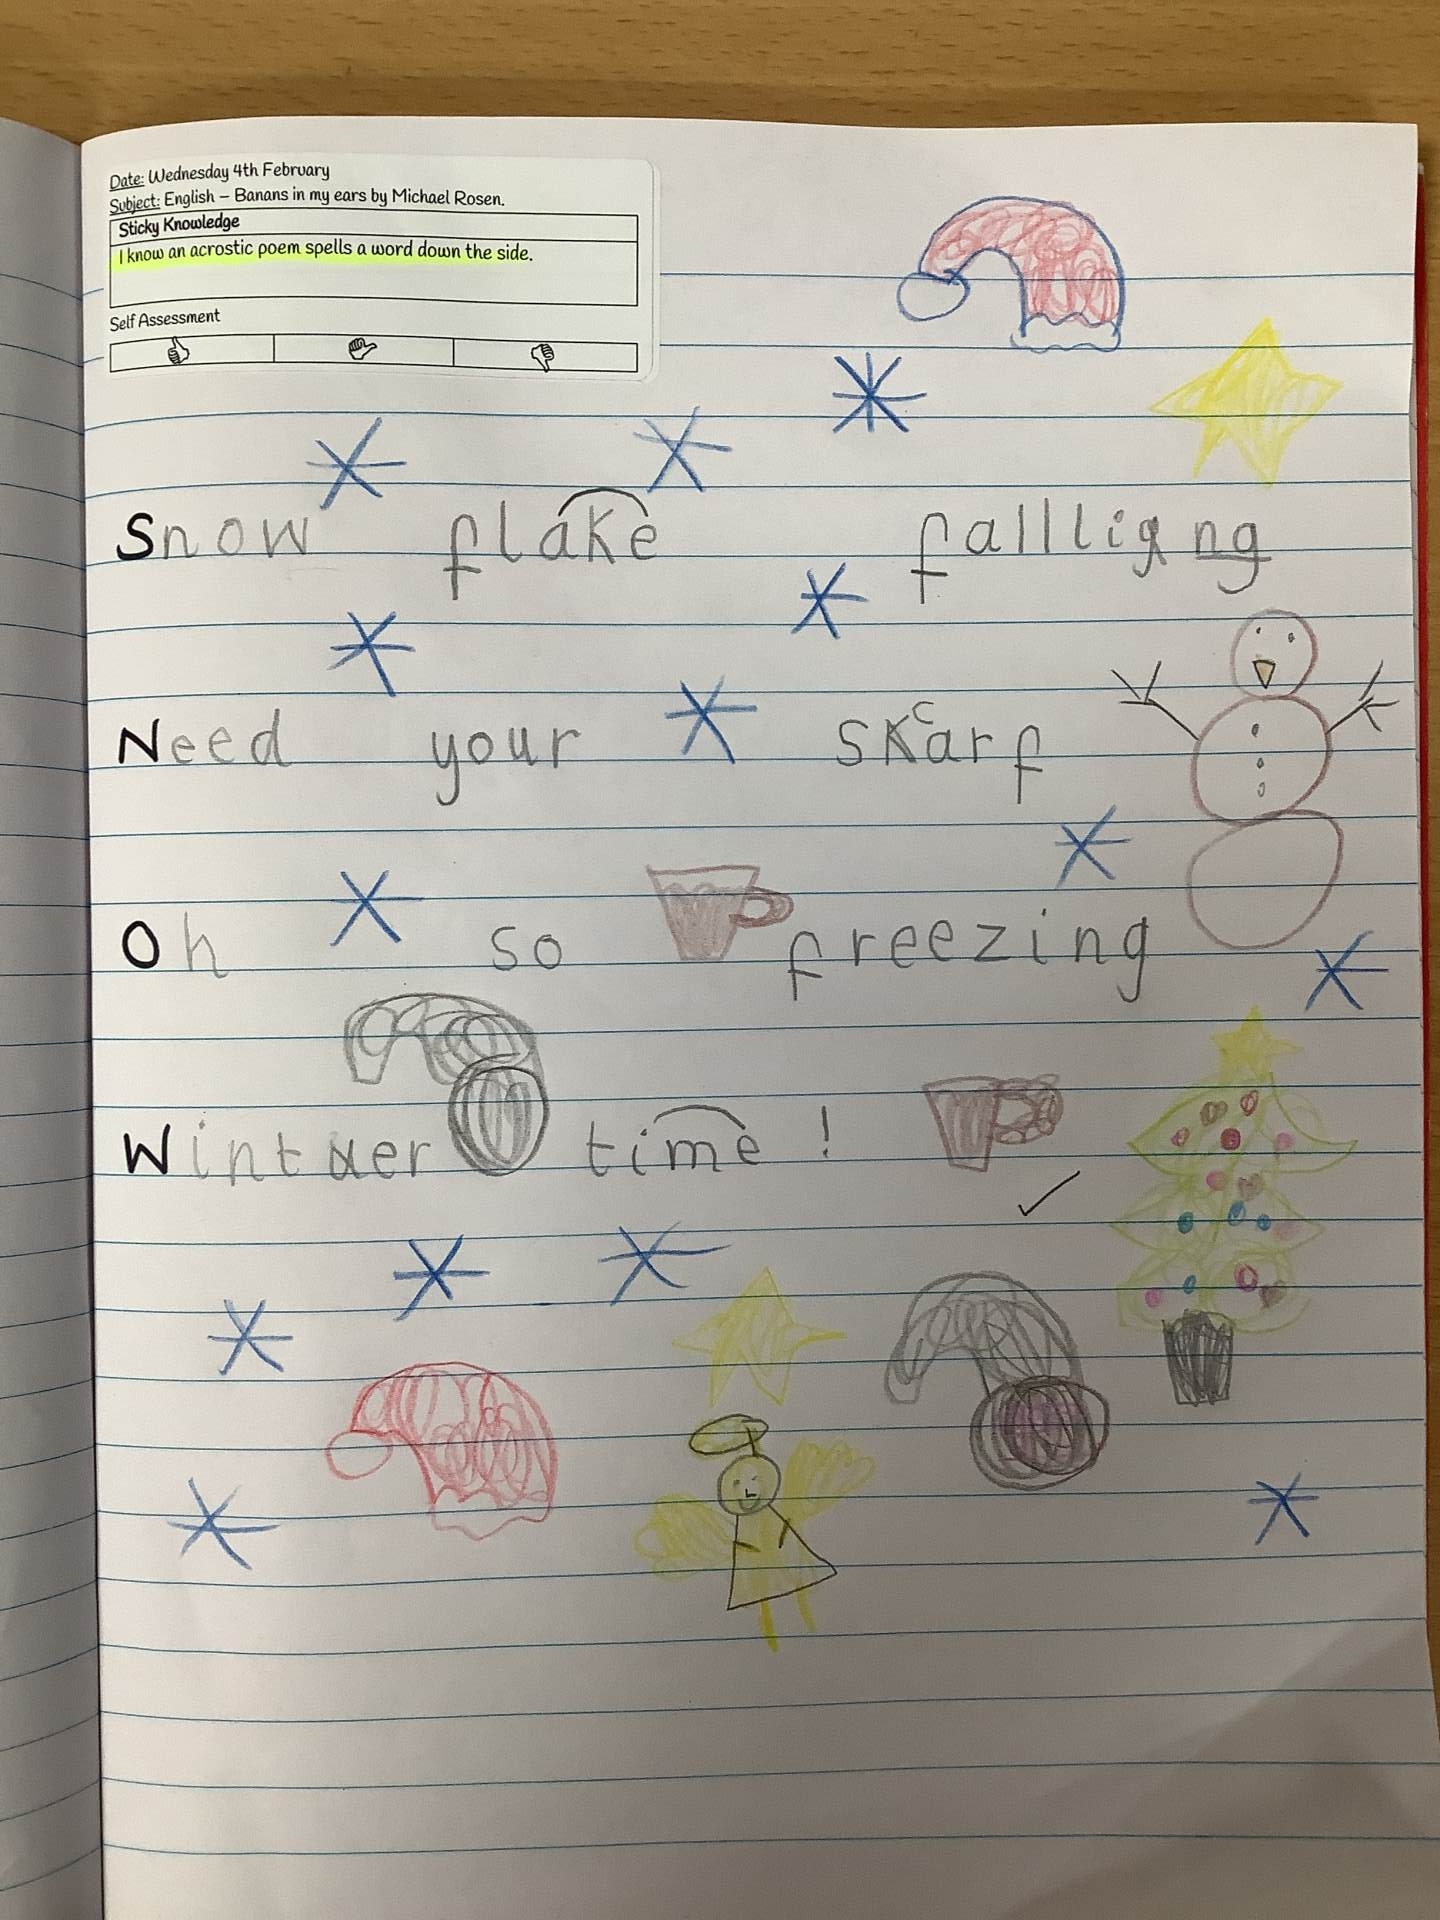 Date: Wednesday 4th February
Subject: English – Banans in my ears by Michael Rosen.
Sticky Knowledge
I know an acrostic poem spells a word down the side.
Self Assessment
Snow flake fallling
Need your scarf
Oh so freezing
Winter time!